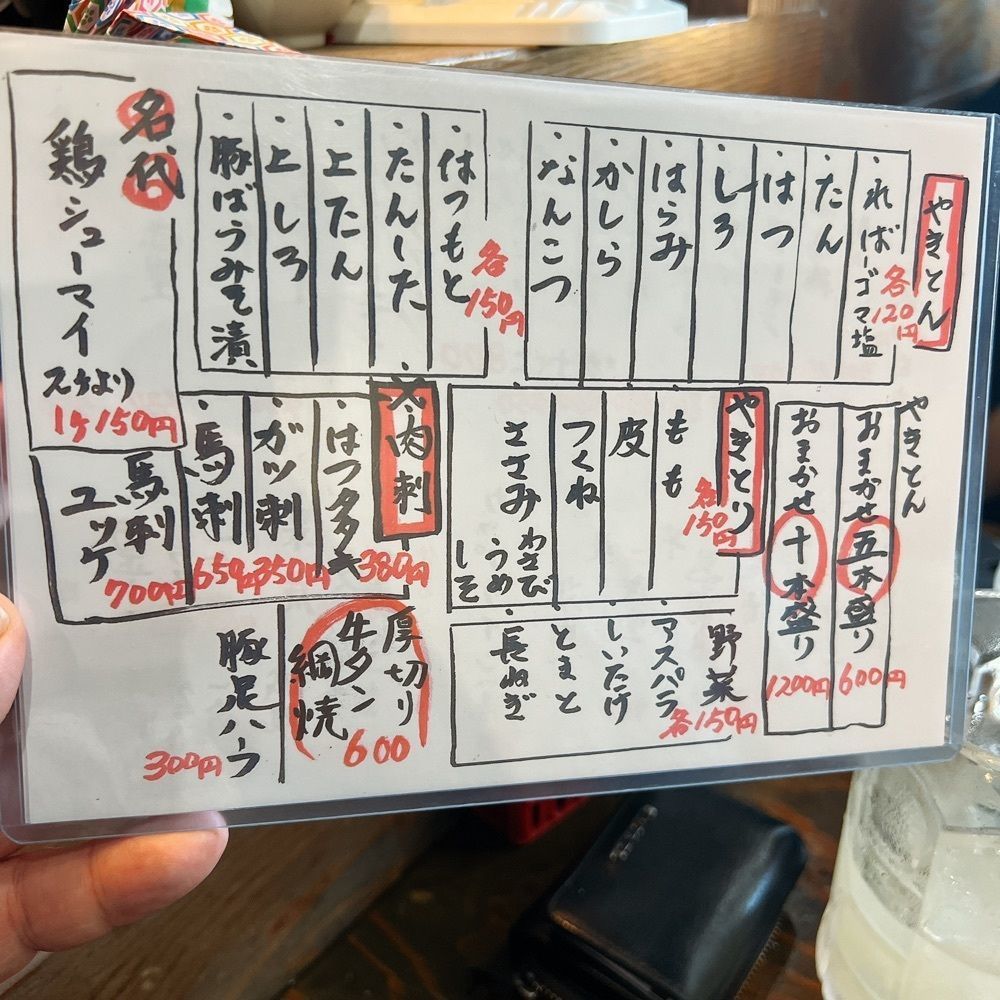 やきとん
各120円
・ればーゴマ塩
・たん
・はつ
・しろ
・はらみ
・かしら
・なんこつ
各150円
・はつもと
・たんした
・上たん
・上しろ
・豚ばらみそ漬
名代
鶏シューマイ
1ケ150円
やきとん
おまかせ五本盛り
600円
おまかせ十本盛り
1200円
やきとり
各150円
もも
皮
つくね
ささみ
わさび
うめ
しそ
肉刺
・はつタタキ
380円
・ガツ刺
350円
・馬刺
650円
・馬刺
ユッケ
700円
野菜
各150円
・アスパラ
・しいたけ
・とまと
・長ねぎ
厚切り
牛タン
網焼
600
豚足ハーフ
300円